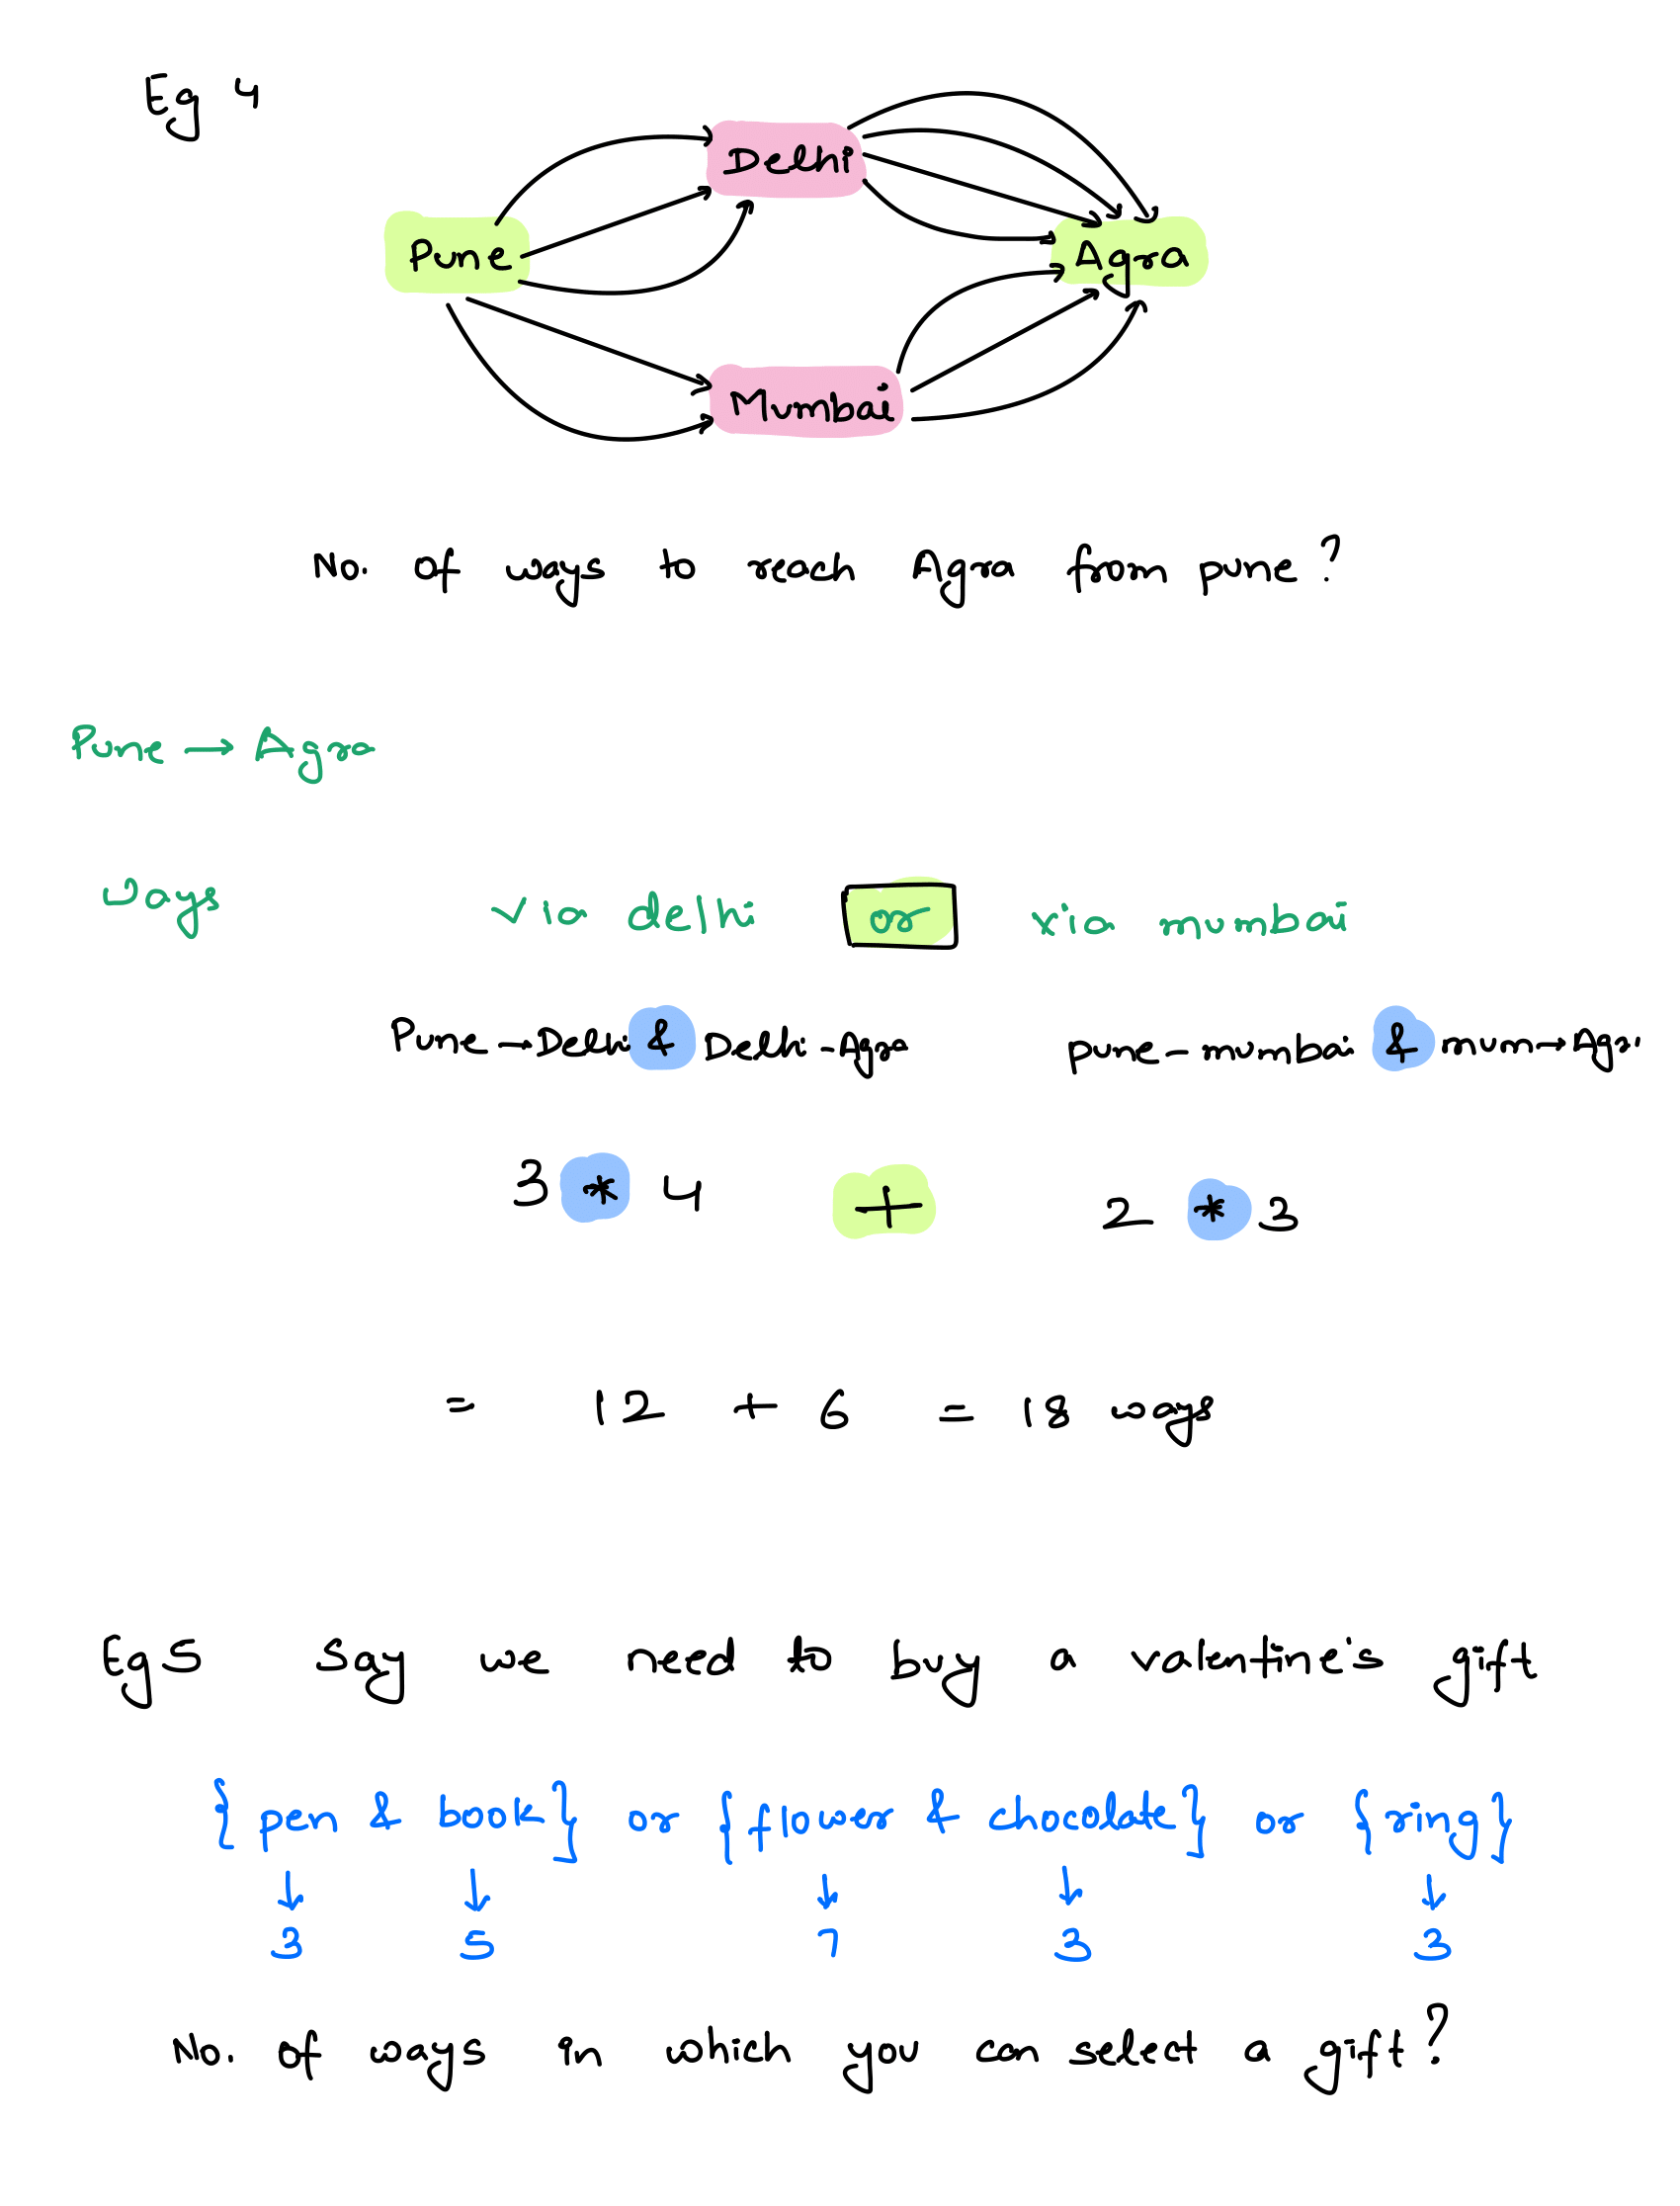 Eg 4
Delhi
Pune
Agra
Mumbai
No. of ways to reach Agra from pune?
Pune → Agra
ways via delhi or via mumbai
Pune → Delhi & Delhi - Agra pune - mumbai & mum → Agr
3 * 4 + 2 * 3
= 12 + 6 = 18 ways
Eg 5 Say we need to buy a valentine's gift
{ pen & book } or { flower & chocolate } or { ring }
↓ ↓ ↓ ↓ ↓
3 5 7 3 3
No. of ways in which you can select a gift?